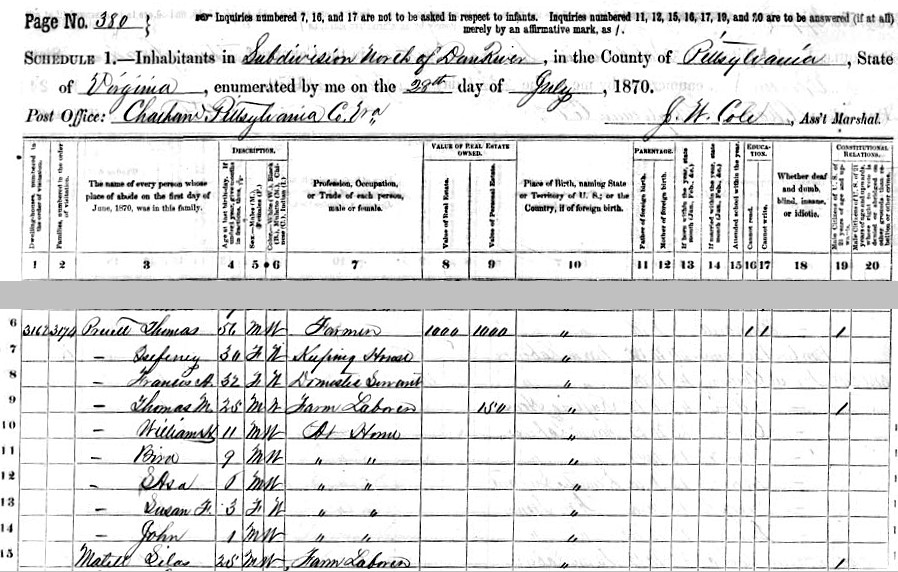 Page No. 380
Inquiries numbered 7, 16, and 17 are not to be asked in respect to infants. Inquiries numbered 11, 12, 15, 16, 17, 19, and 20 are to be answered (if at all)
merely by an affirmative mark, as /.
Schedule 1.—Inhabitants in Subdivision North of Dan River, in the County of Pittsylvania, State
of Virginia, enumerated by me on the 28th day of July, 1870.
Post Office: Chatham Pittsylvania Co. Va
J. W. Cole, Ass't Marshal.
Dwelling-houses, numbered in the order of visitation.
Families, numbered in the order of visitation.
The name of every person whose place of abode on the first day of June, 1870, was in this family.
Description.
Age at last birth-day. If under 1 year, give months in fractions, thus,
Sex.—Males (M.), Females (F.)
Color.—White (W.), Black (B.), Mulatto (M.), Chinese (C.), Indian (I.)
Profession, Occupation, or Trade of each person, male or female.
Value of Real Estate owned.
Value of Real Estate.
Value of Personal Estate.
Place of Birth, naming State or Territory of U. S.; or the Country, if of foreign birth.
Parentage.
Father of foreign birth.
Mother of foreign birth.
If born within the year, state month (Jan., Feb., &c.)
If married within the year, state month (Jan., Feb., &c.)
Education.
Attended school within the year.
Cannot read.
Cannot write.
Whether deaf and dumb, blind, insane, or idiotic.
Constitutional Relations.
Male Citizens of U. S. of 21 years of age and upwards.
1 2 3 4 5 6 7 8 9 10 11 12 13 14 15 16 17 18 19 20
6 3162 3174 Pruett Thomas 56 M W Farmer 1000 1000 " 1 1 1
7 — 30 F W Keeping House "
8 — Francis A. 32 F W Domestic Servant "
9 — Thomas M. 25 M W Farm Laborer 150 " 1
10 — William 11 M W At Home "
11 — 9 M W " " "
12 — Asa M W " " "
13 — Susan F. 3 F W " " "
14 — John 1 M W " " "
15 Silas 25 M W Farm Laborer " 1